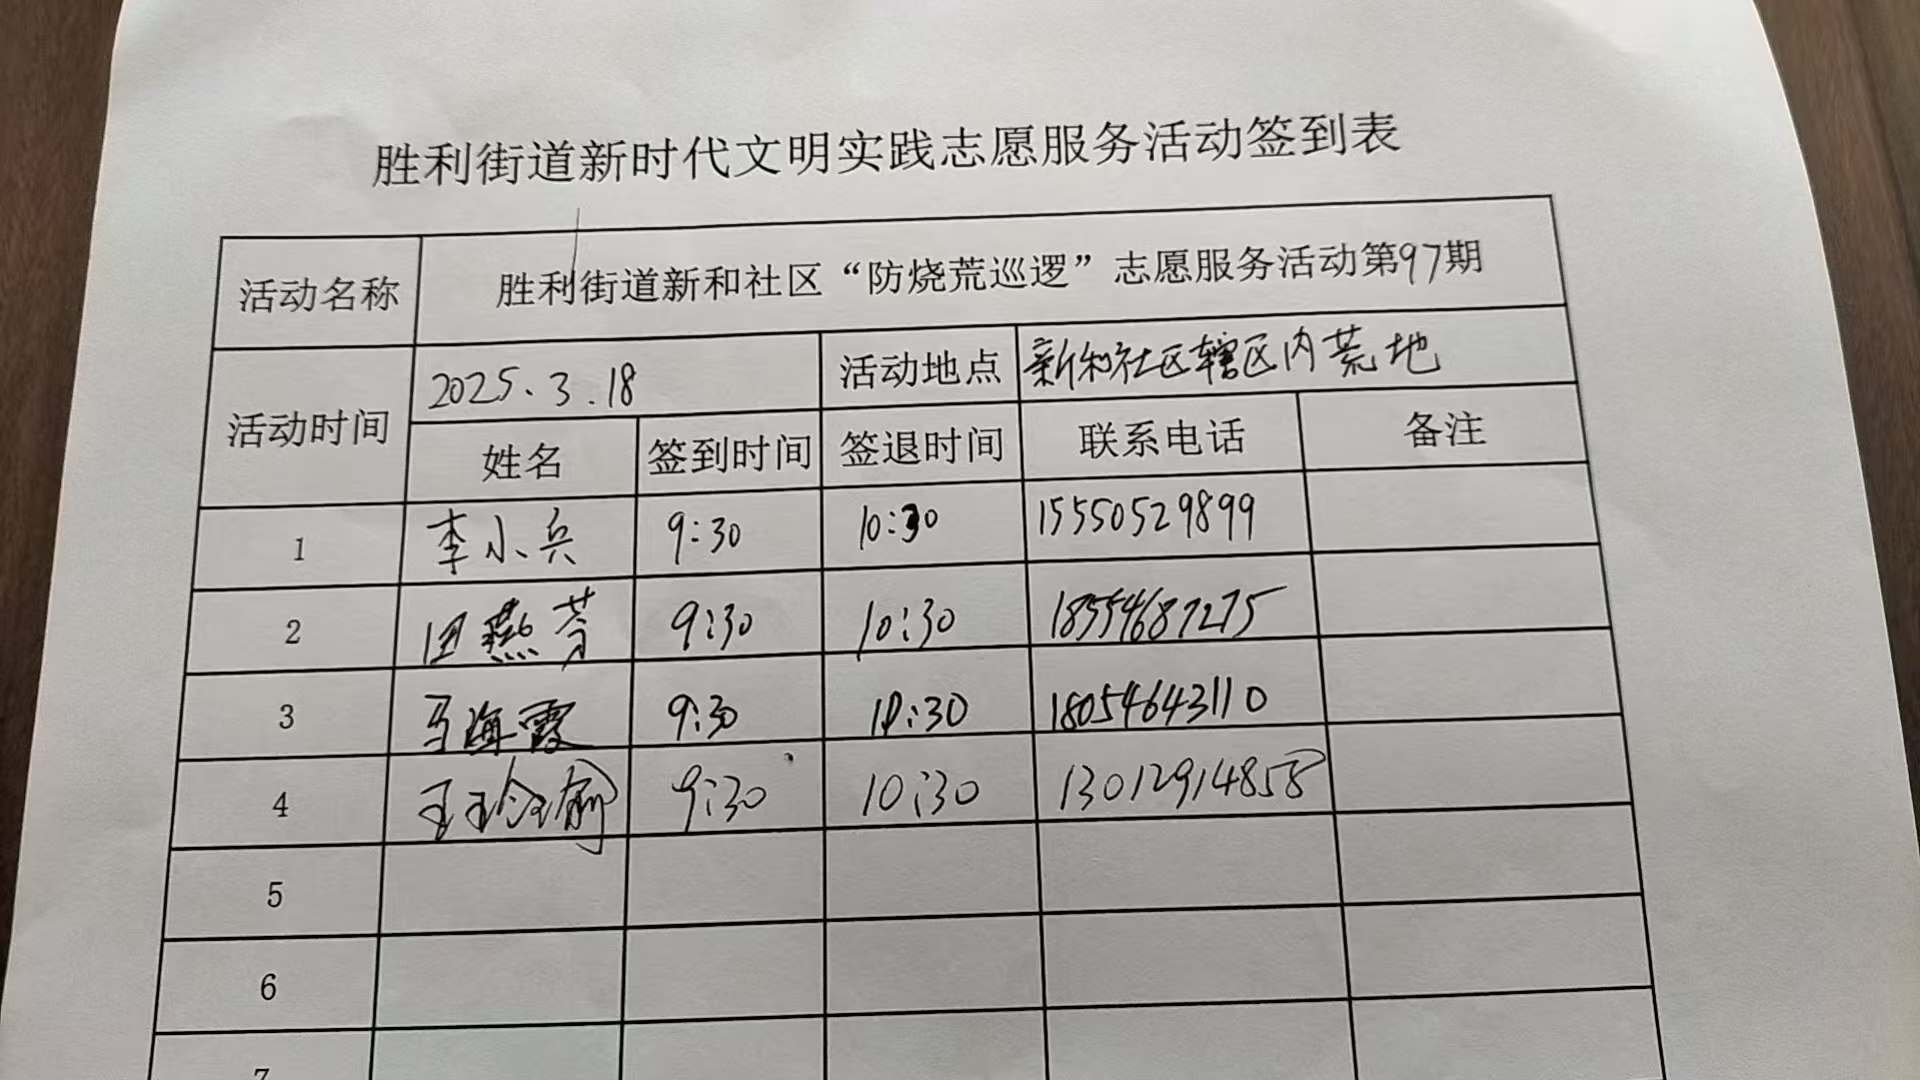 胜利街道新时代文明实践志愿服务活动签到表
活动名称 胜利街道新和社区“防烧荒巡逻”志愿服务活动第97期
活动时间 2025.3.18 活动地点 新和社区辖区内荒地
姓名 签到时间 签退时间 联系电话 备注
1 李小兵 9:30 10:30 15550529899
2 燕芳 9:30 10:30 18554687275
3 马海霞 9:30 10:30 18054643110
4 王玲瑜 9:30 10:30 13012914858
5
6
7